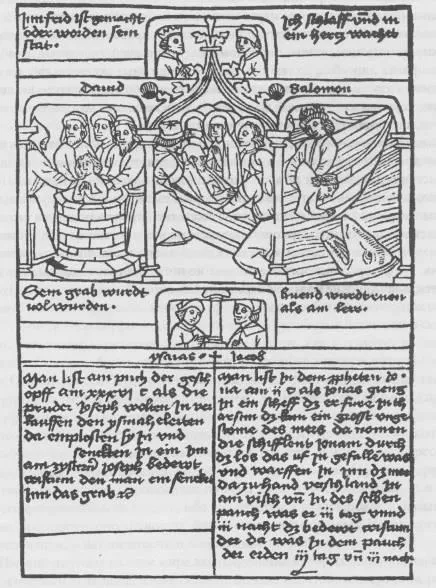 Im frid ist gemacht
oder worden sein
stat.
Ich schlaff vnd m
ein hercz wachet
David
Salomon
Sein grab wurdt
vol wurden.
Ruend wurdt ruen
als am lew.
ysaias. + Jacob
Man list am puch der gesch
opff am xxxvi c als die
prüder Joseph wolten In ver
kauffen den ysmahelerten
da emplosten sy In vnd
sencketen In ein
am zystern Joseph bedewt
cristum den man ein sencket
Inn das grab
Man list In dem ppheten Jo
na am ii c als Jonas gieng
In ein scheff dz er fuer In th
arsim dz kam ein gross vnge
stome des mers da namen
die schifflewt Jonam durch
dz los das uf In gefalle was
vnd warffen In Inn dz mer
da zu hand verschland In
ain visch vn In des selben
pauch was er iii tag vnnd
iii nacht dz bedewt cristum
der da was In dem pauch
der erden iii tag vn iii nacht